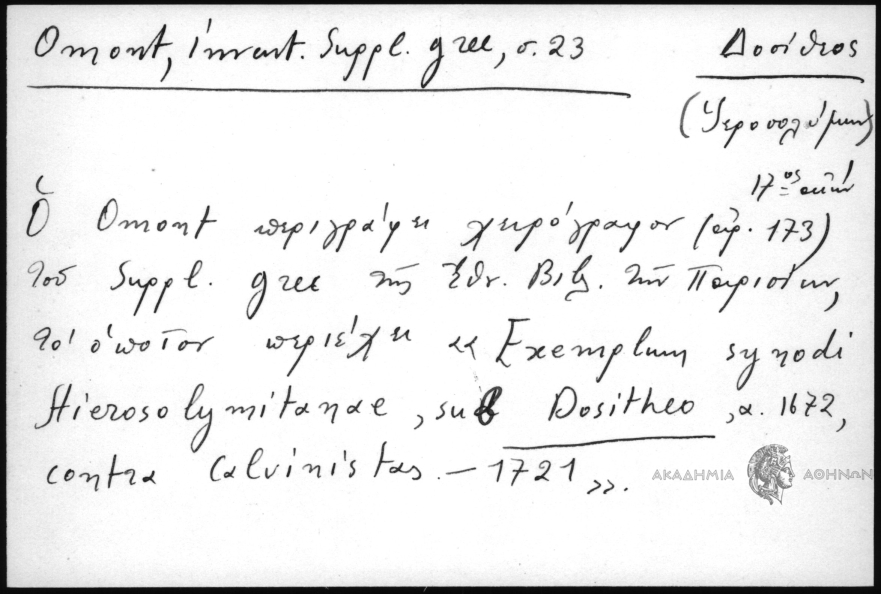 Omont, Invent. Suppl. grec, σ. 23
Δοσίθεος
(Ἱεροσολύμων)
17ος αἰών
Ὁ Omont περιγράφει χειρόγραφον (ἀρ. 173)
τοῦ Suppl. grec τῆς Ἐθν. Βιβλ. τῶν Παρισίων,
τὸ ὁποῖον περιέχει «Exemplum synodi
Hierosolymitanae, sub Dositheo, a. 1672,
contra Calvinistas. — 1721».
ΑΚΑΔΗΜΙΑ ΑΘΗΝΩΝ